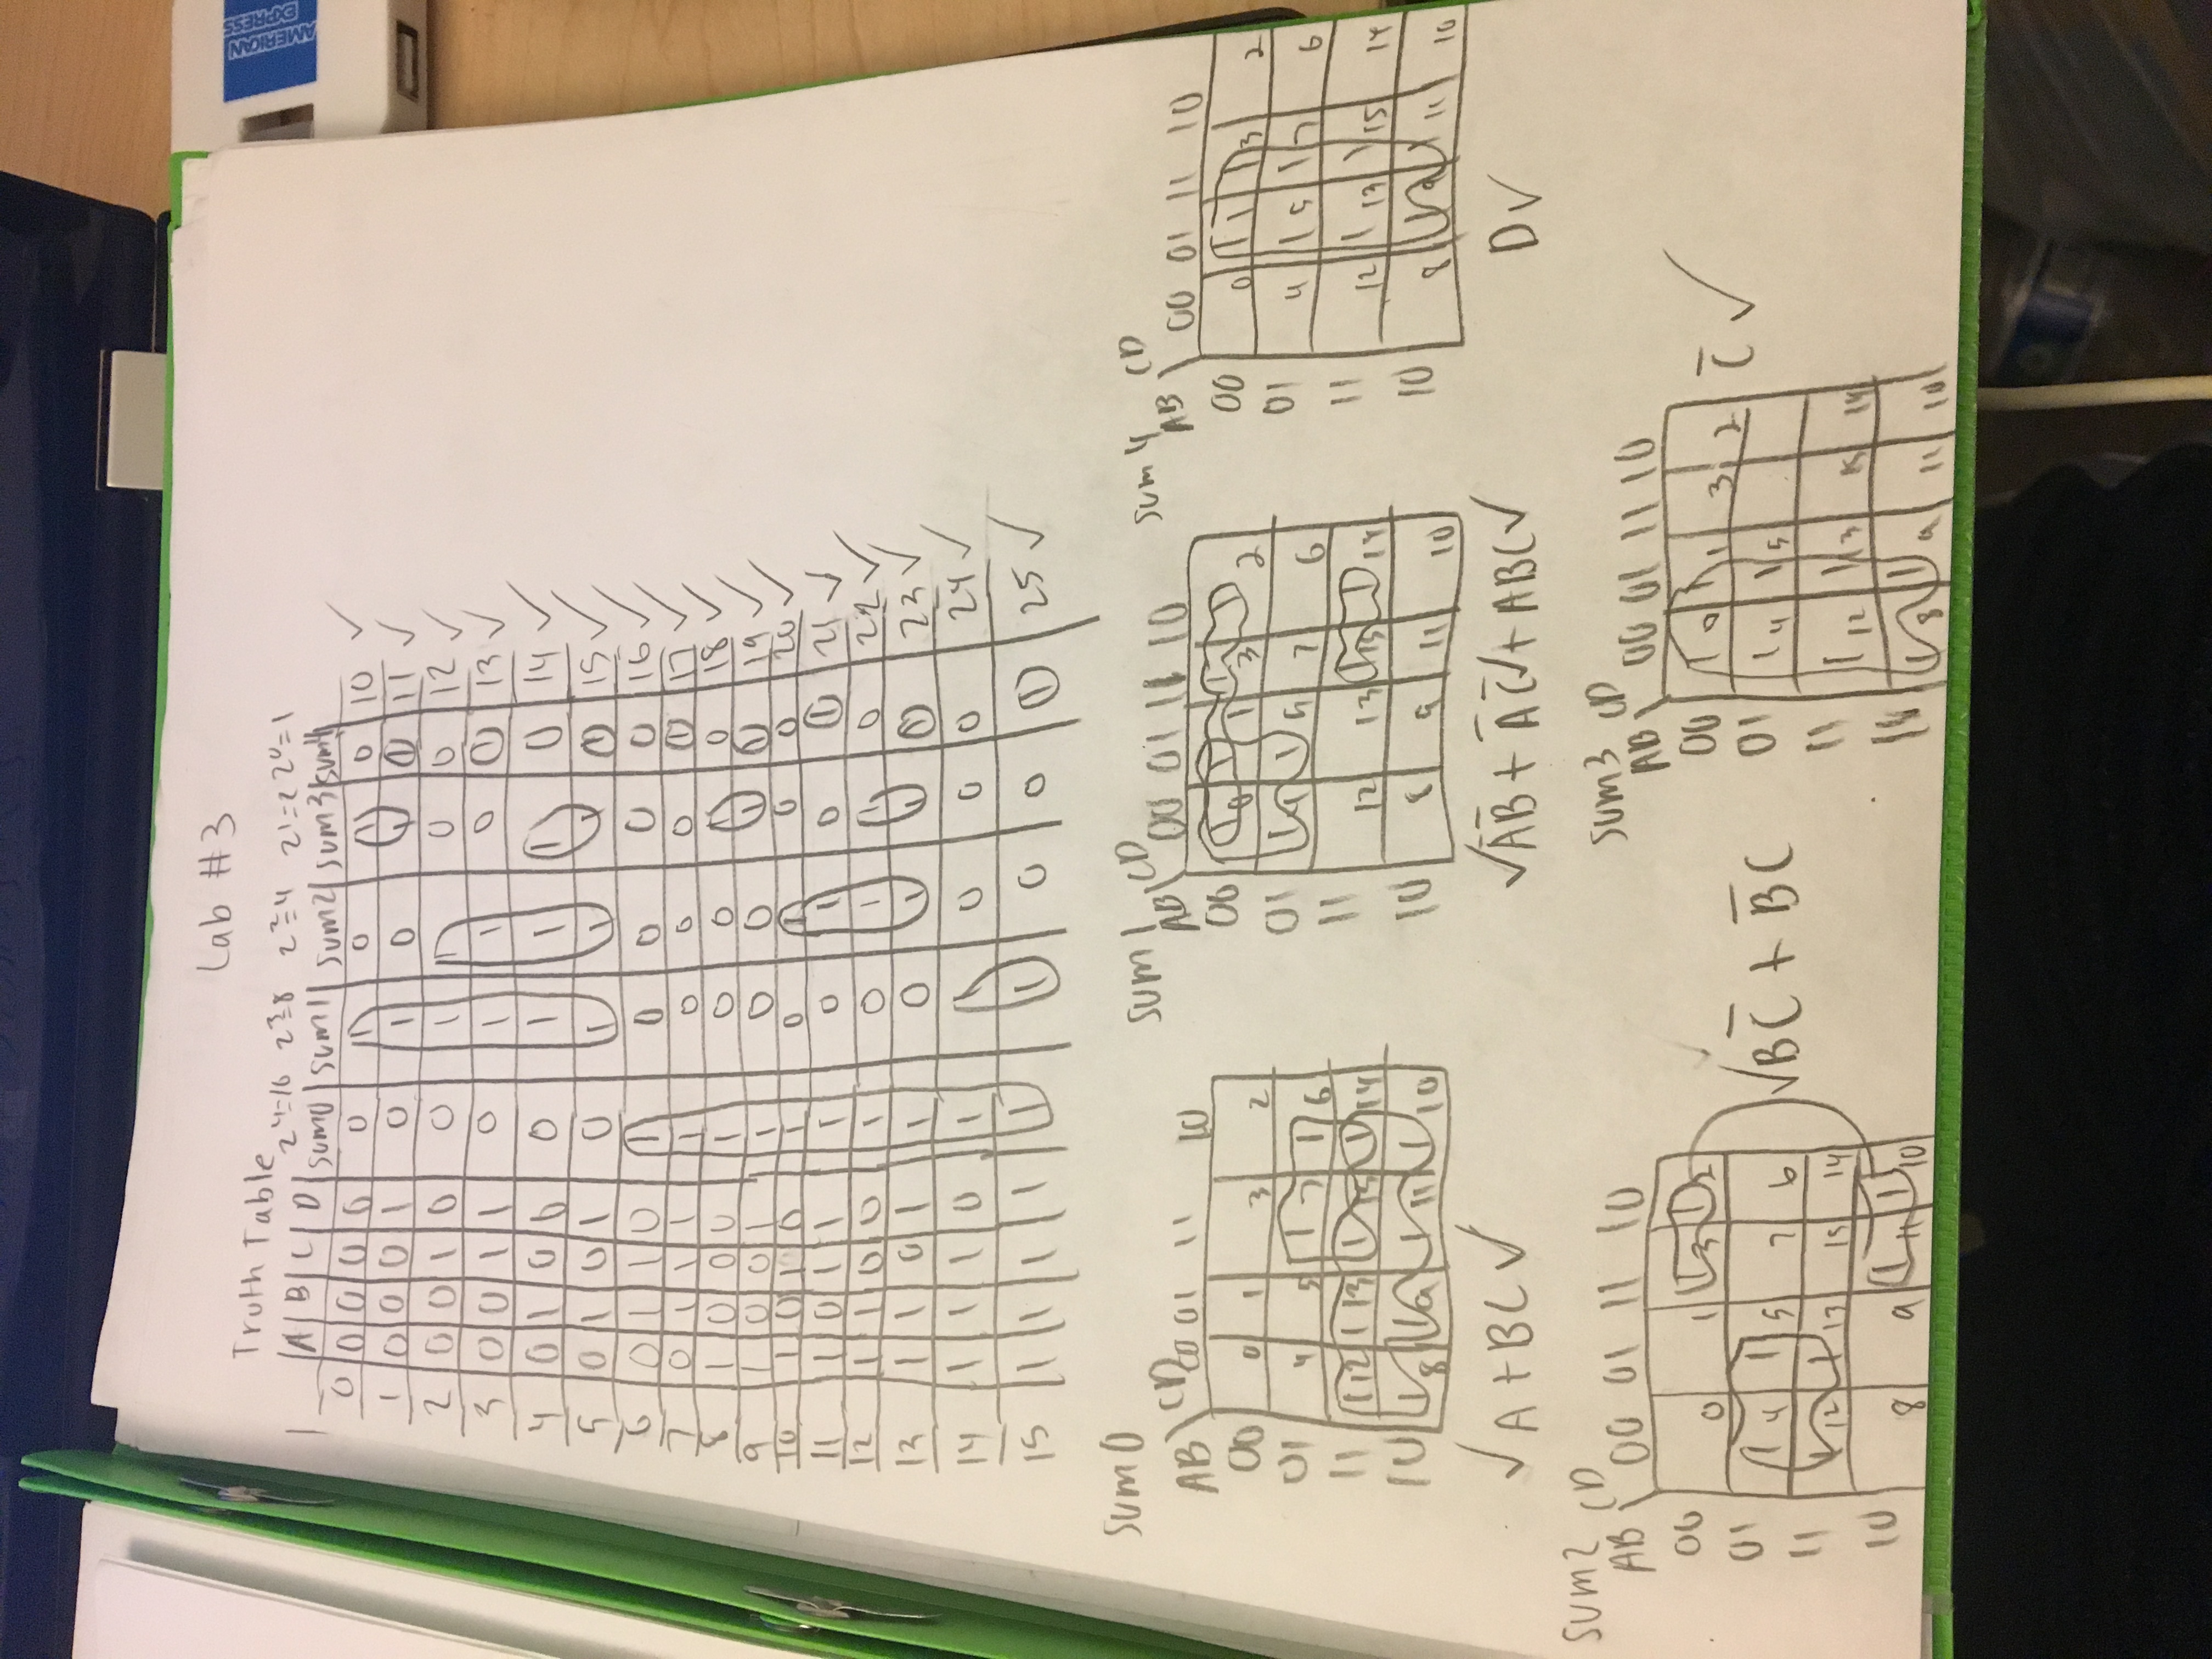 Lab #3
AMERICAN EXPRESS
Truth Table
2⁴=16 2³=8 2²=4 2¹=2 2⁰=1
A B C D sum0 sum1 sum2 sum3 sum4
0 0 0 0 0 0 1 0 1 0 10 ✓
1 0 0 0 1 0 1 0 1 1 11 ✓
2 0 0 1 0 0 1 1 0 0 12 ✓
3 0 0 1 1 0 1 1 0 1 13 ✓
4 0 1 0 0 0 1 1 1 0 14 ✓
5 0 1 0 1 0 1 1 1 1 15 ✓
6 0 1 1 0 1 0 0 0 0 16 ✓
7 0 1 1 1 1 0 0 0 1 17 ✓
8 1 0 0 0 1 0 0 1 0 18 ✓
9 1 0 0 1 1 0 0 1 1 19 ✓
10 1 0 1 0 1 0 1 0 0 20 ✓
11 1 0 1 1 1 0 1 0 1 21 ✓
12 1 1 0 0 1 0 1 1 0 22 ✓
13 1 1 0 1 1 0 1 1 1 23 ✓
14 1 1 1 0 1 1 0 0 0 24 ✓
15 1 1 1 1 1 1 0 0 1 25 ✓
sum0
AB \ CD 00 01 11 10
00 0 1 3 2
01 4 5 1 7 1 6
11 1 12 1 13 1 15 1 14
10 1 8 1 9 1 11 1 10
✓ A + BC ✓
sum1
AB \ CD 00 01 11 10
00 1 0 1 1 1 3 1 2
01 1 4 1 5 7 6
11 12 13 1 15 1 14
10 8 9 11 10
✓ A̅B̅ + A̅C̅ ✓ + ABC ✓
sum4
AB \ CD 00 01 11 10
00 0 1 1 1 3 2
01 4 1 5 1 7 6
11 12 1 13 1 15 14
10 8 1 9 1 11 10
D ✓
sum2
AB \ CD 00 01 11 10
00 0 1 1 3 1 2
01 1 4 1 5 7 6
11 1 12 1 13 15 14
10 8 9 1 11 1 10
✓ BC̅ + B̅C
sum3
AB \ CD 00 01 11 10
00 1 0 1 1 3 2
01 1 4 1 5
11 1 12 1 13 15 14
1 8 1 9 11 10
C̅ ✓